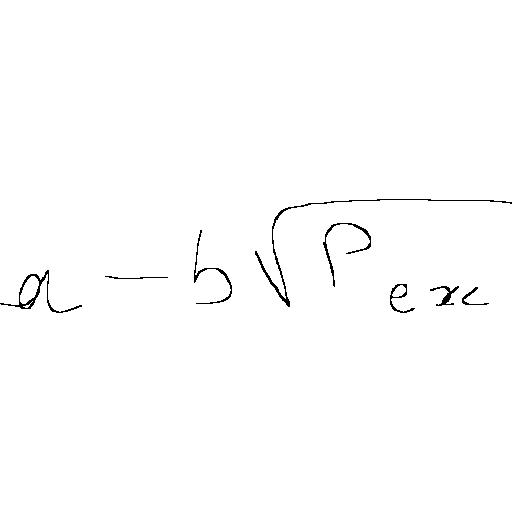 a - b\sqrt{P_{ex}}